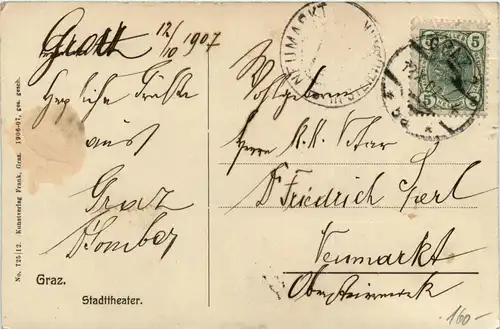 Graz 12/10 1907
Herzliche Grüße
aus
Graz
Wohlgeboren
Herrn K.K. Notar
Dr Friedrich
Neumarkt
Obersteiermark
NEUMARKT
5 5
5 5
GRAZ
No. 725/12. Kunstverlag Frank, Graz. 1906-07, ges. gesch.
Graz.
Stadttheater.
160.-